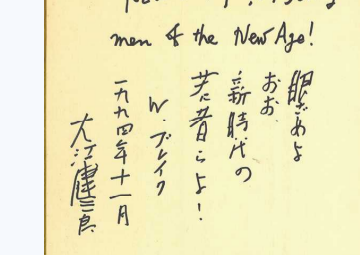 men of the New Age!
眼ざめよ
おお
新時代の
若者らよ!
W. ブレイク
一九九四年十一月
大江健三郎